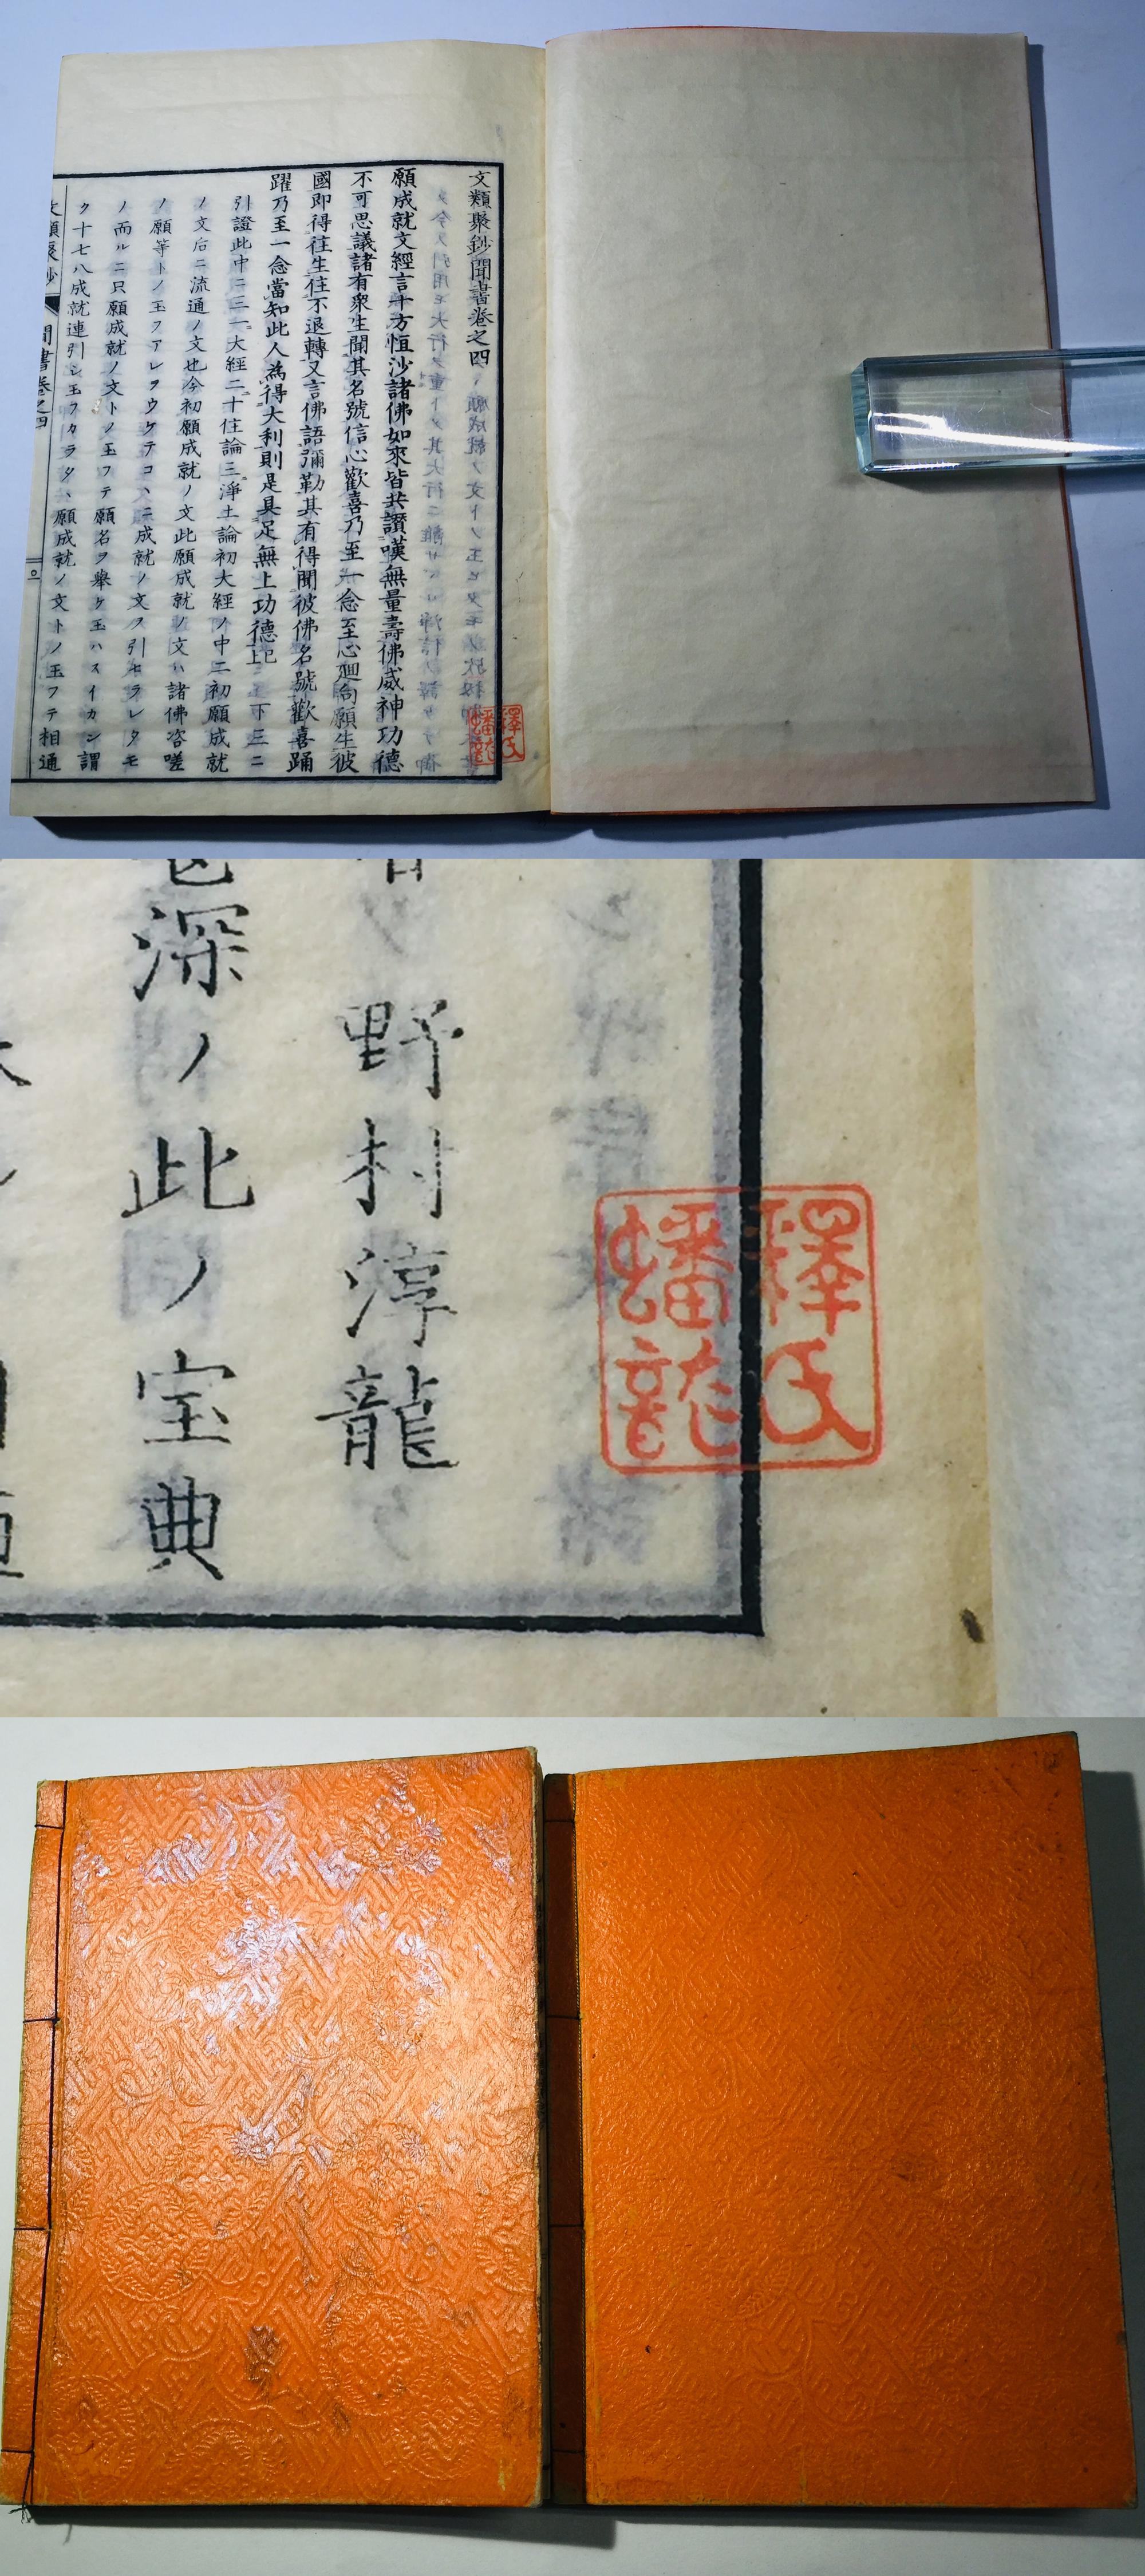 文類聚鈔聞書卷之四
願成就文經言十方恒沙諸佛如來皆共讚嘆無量壽佛威神功德
不可思議諸有衆生聞其名號信心歡喜乃至一念至心廻向願生彼
國即得往生住不退轉又言佛語彌勒其有得聞彼佛名號歡喜踊
躍乃至一念當知此人為得大利則是具足無上功德已上
引證此中ニ三一大經二十住論三淨土論初大經ノ中二初願成就
ノ文后ニ流通ノ文也今初願成就ノ文此願成就ノ文ハ諸佛咨嗟
ノ願等トノ玉フアレヲウケテコヽニ成就ノ文ヲ引セラレタモ
ノ而ルニ只願成就ノ文トノ玉フテ願名ヲ舉ケ玉ハスイカン謂
ク十七八成就連引シ玉フカラタハ願成就ノ文トノ玉フテ相通
聞書卷之四
釋氏
蟠龍
野村淳龍
深ノ此ノ宝典
釋氏
蟠龍